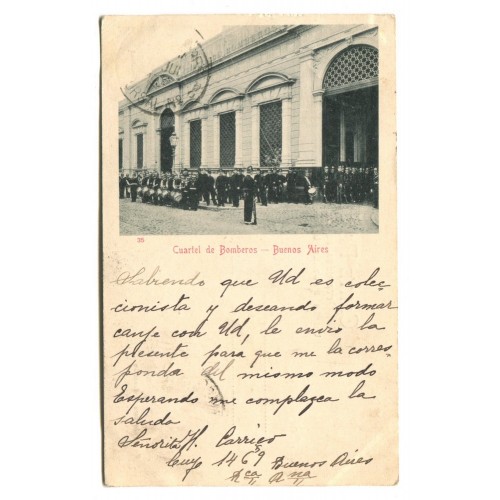 35
Cuartel de Bomberos — Buenos Aires
Sabiendo que Ud es colec-
cionista y deseando formar
canje con Ud, le envio la
presente para que me la corres
ponda del mismo modo
Esperando me complazca la
saluda
Señorita H. Carrico
Cuyo 1469 Buenos Aires
Rca Ana